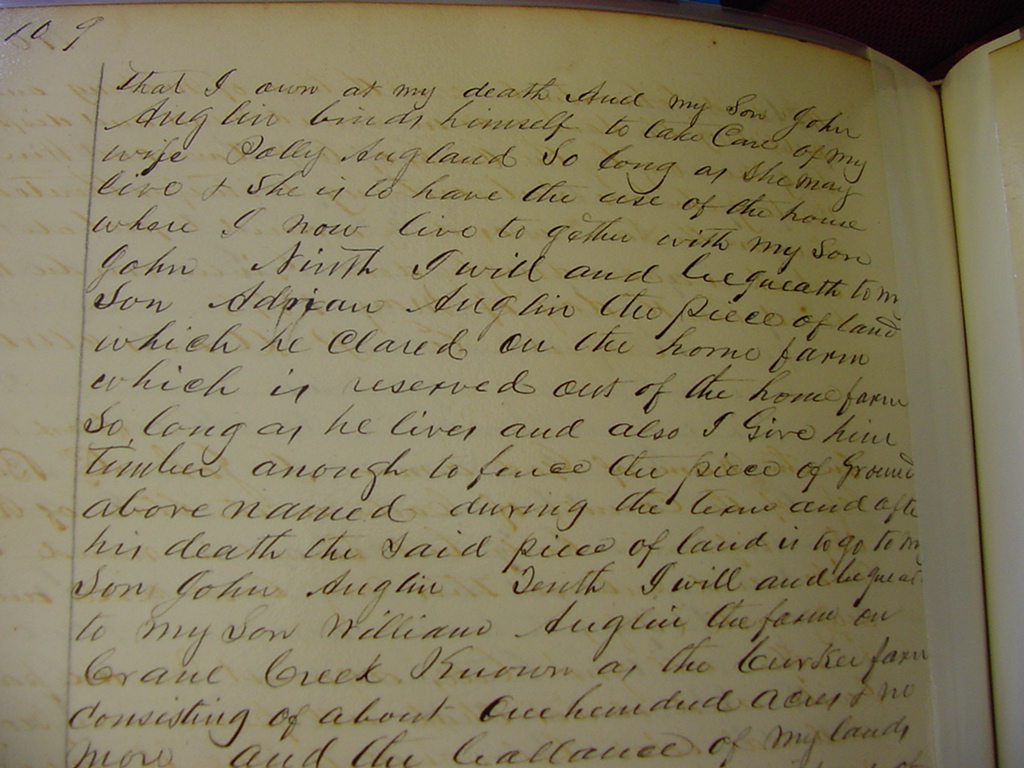 109
that I own at my death And my Son John
Anglin binds himself to take Care of my
wife Sally Angland So long as She may
live & She is to have the use of the house
where I now live to gether with my Son
John Ninth I will and bequeath to m
Son Adrian Anglin the piece of land
which he Clared on the home farm
which is reserved out of the home farm
So long as he lives and also I Give him
timber anough to fence the piece of Ground
above named during the term and afte
his death the Said piece of land is to go to m
Son John Anglin Tenth I will and bequeat
to my Son William Anglin the farm on
Crane Creek Known as the farm
Consisting of about One hundred acres mo
more and the ballance of my lands